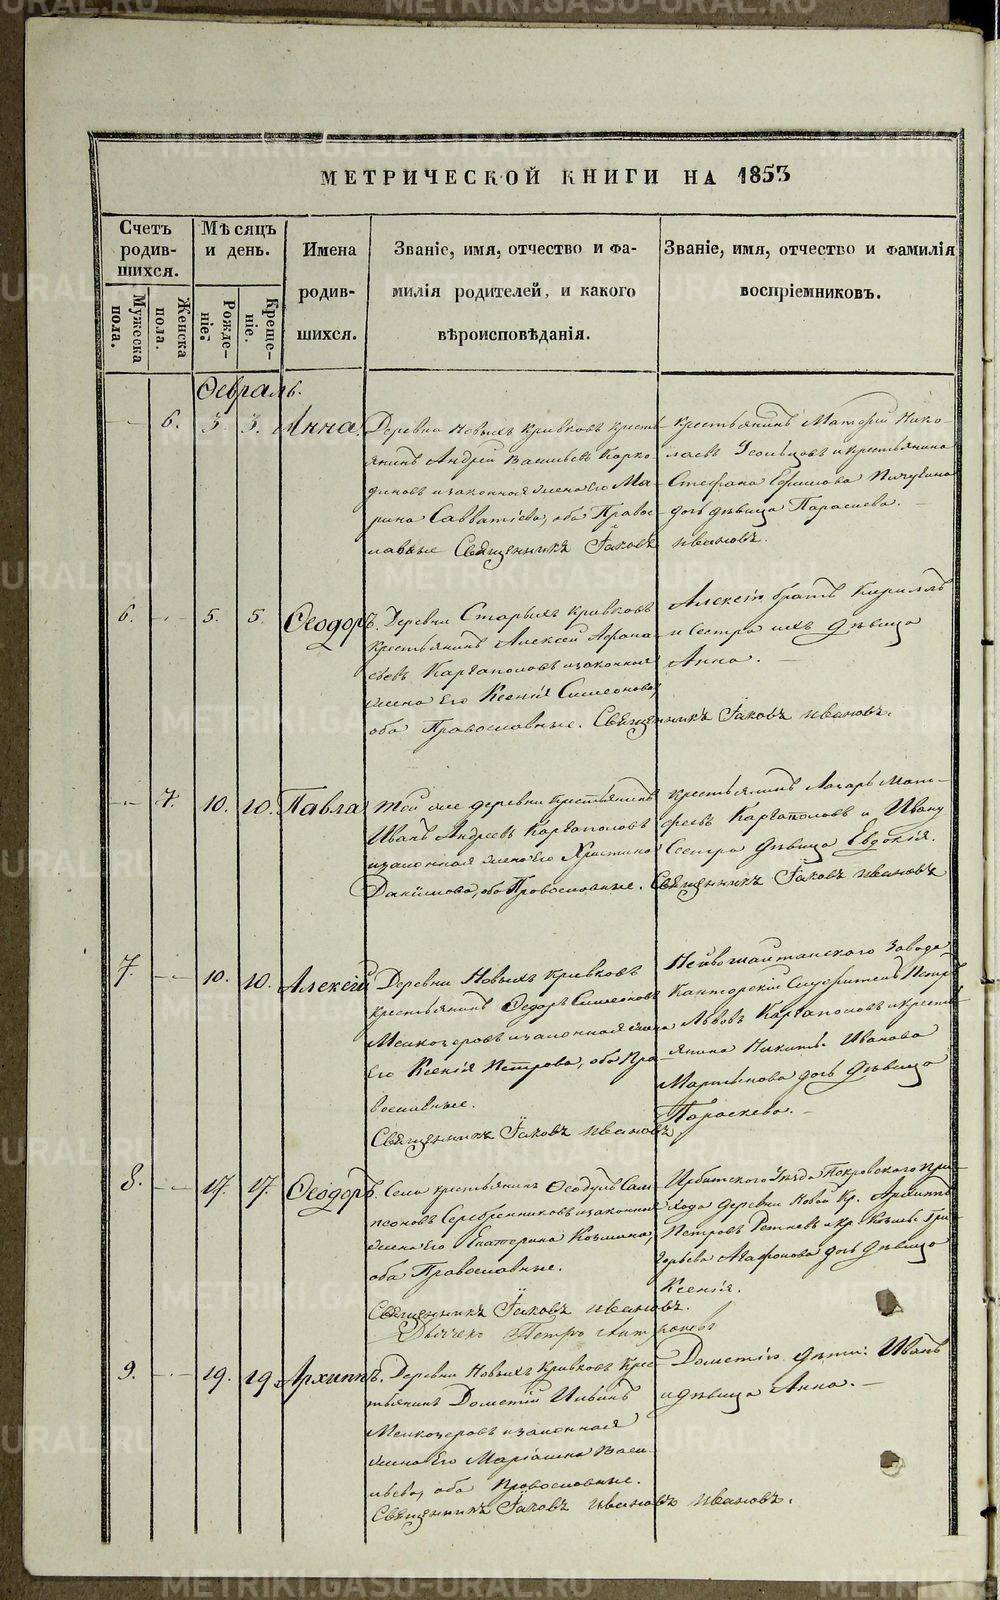 МЕТРИЧЕСКОЙ КНИГИ НА 1853
Счетъ родив-шихся.
Мужеска пола.
Женска пола.
Мѣсяцъ и день.
Рожде-ніе.
Креще-ніе.
Имена родив-шихся.
Званіе, имя, отчество и фа-
милія родителей, и какого
вѣроисповѣданія.
Званіе, имя, отчество и фамилія
воспріемниковъ.
Февраль.
6. 3. 3. Анна.
Деревни Новыхъ Кривковъ кресть-
янинъ Андрей Васильевъ Карко-
диновъ и законная жена его Ма-
рина Савватіева, оба Право-
славные Священникъ Іаковъ Ивановъ.
Крестьянинъ Нико-
лаевъ и крестьянина
Стефана Ефимова Пичугина
дочь дѣвица Параскева.
6. 5. 5. Ѳеодоръ.
Деревни Старыхъ Кривковъ
крестьянинъ Алексѣй Афана-
сьевъ Каргаполовъ и законная
жена его Ксенія Симеонова,
оба Православные. Священникъ Іаковъ Ивановъ.
Алексія братъ Кириллъ
и сестра ихъ дѣвица
Анна.
7. 10. 10. Павла
Той же деревни крестьянинъ
Иванъ Андреевъ Каргаполовъ
и законная жена его Христина
Даниилова, оба Православные. Священникъ Іаковъ Ивановъ
Крестьянинъ Лазарь Мат-
феевъ Каргаполовъ и Ивану
сестра дѣвица Евдокія.
7. 10. 10. Алексѣй
Деревни Новыхъ Кривковъ
крестьянинъ Ѳедоръ Симеоновъ
Мелкозеровъ и законная жена
его Ксенія Петрова, оба Пра-
вославные.
Священникъ Іаковъ Ивановъ
Нейвошайтанского Завода
Канторскій Служитель Петръ
Львовъ Каргаполовъ и кресть-
янина Никиты Иванова
Мартьянова дочь дѣвица
Параскева.
8. 17. 17. Ѳеодоръ.
Села крестьянинъ Ѳеодулъ Сам-
псоновъ Серебренниковъ и законная
жена его Екатерина Козмина,
оба Православные.
Священникъ Іаковъ Ивановъ.
Дьячекъ Петръ
Ирбитского Уѣзда Покровского при-
хода деревни Новой кр. Архиппъ
Петровъ Ретневъ и кр. Козьмы Гри-
горьева Агафонова дочь дѣвица
Ксенія.
9. 19. 19. Архиппъ.
Деревни Новыхъ Кривковъ крес-
тьянинъ Дометій Ильинъ
Мелкозеровъ и законная
жена его Маріамна Васи-
льева, оба Православные.
Священникъ Іаковъ Ивановъ Ивановъ.
Дометія дѣти: Иванъ
и дѣвица Анна.
METRIKI.GASO-URAL.RU